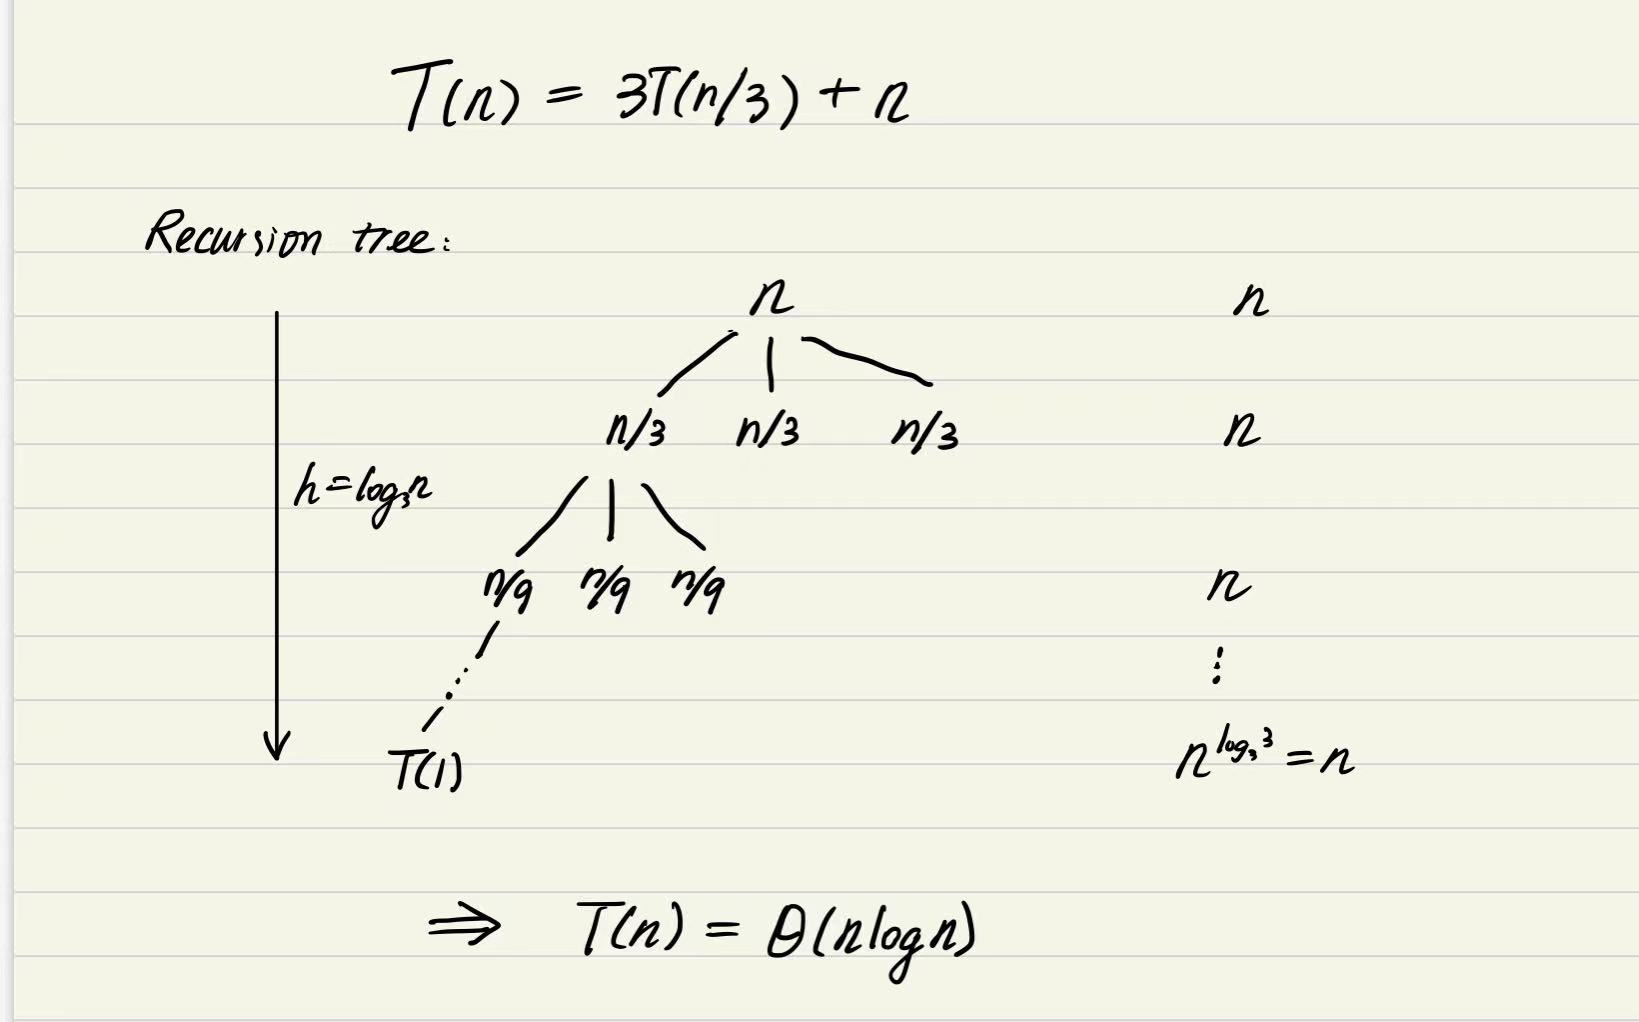 T(n) = 3T(n/3) + n
Recursion tree:
n n
n/3 n/3 n/3 n
h=log₃n
n/9 n/9 n/9 n
⋮
T(1) n^{log₃3} = n
⇒ T(n) = θ(nlogn)